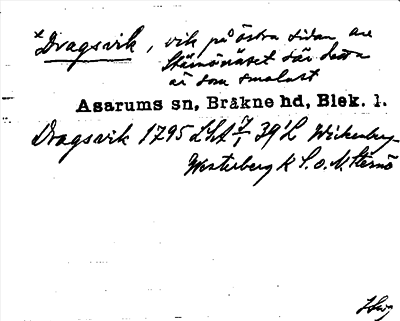 *Dragsvik, vik på östra sidan av
Stärnönäset där detta
är som smalast
Asarums sn, Bräkne hd, Blek. l.
Dragsvik 1795 Lht 7/1 39 1/2 Wickenberg
Westerberg k S. o. N. Sternö